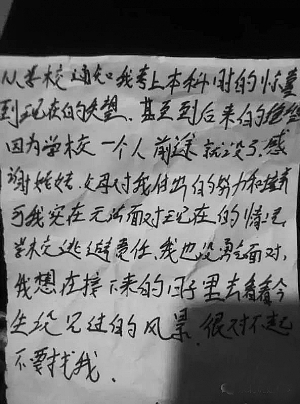 从学校通知我考上本科时的惊喜
到现在的失望，甚至到后来的绝望
因为学校一个人前途就没了，感
谢姥姥，父母对我付出的努力和培养
可我实在无法面对现在的情况
学校逃避责任，我也没勇气面对，
我想在接下来的日子里去看看今
生没见过的风景，很对不起
不要找我．